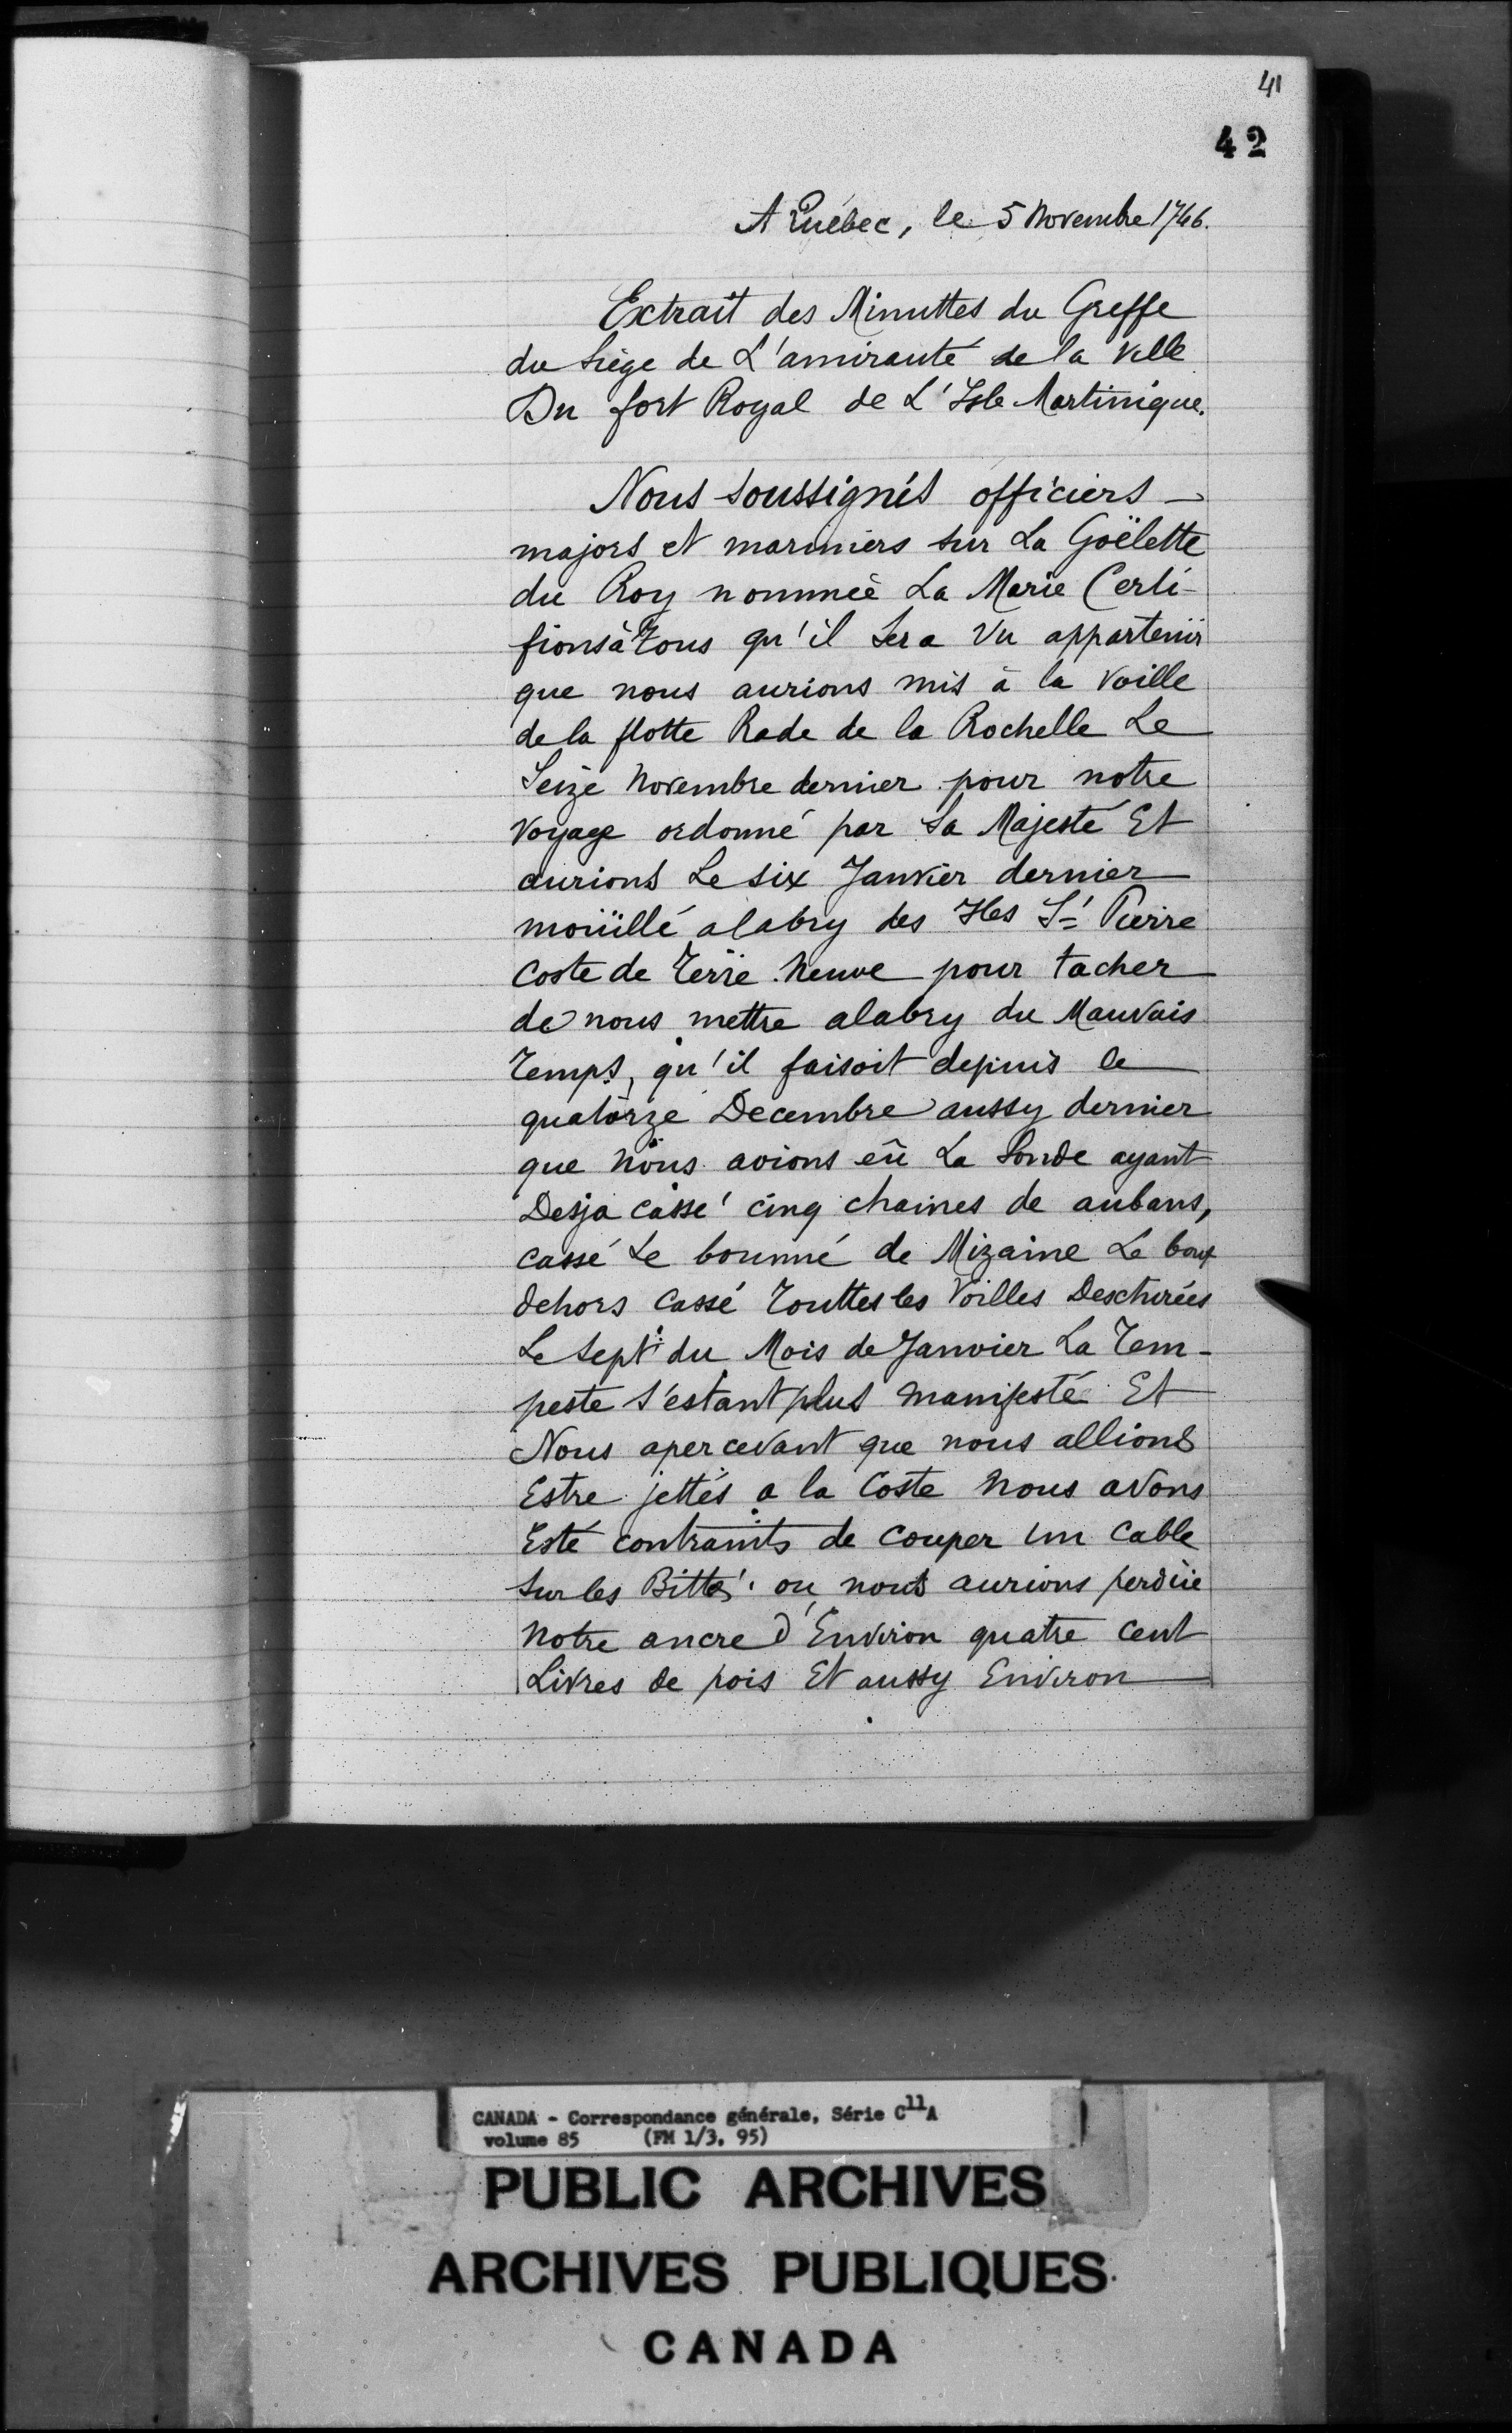 41
42
A Québec, le 5 Novembre 1746.
Extrait des Minuttes du Greffe
du Siège de L'amirauté de la Ville
Du fort Royal de L'Isle Martinique.
Nous soussignés officiers
majors et mariniers sur La Goëlette
du Roy nommée La Marie Certi-
fions à Tous qu'il Sera Vu appartenir
que nous aurions mis à la Voille
de la flotte Rade de la Rochelle Le
Seize Novembre dernier pour notre
Voyage ordonné par Sa Majesté Et
aurions Le six Janvier dernier
moüillé alabry des Iles St Pierre
Coste de Terre Neuve pour tacher
de nous mettre alabry du Mauvais
Temps, qu'il faisoit depuis le
quatorze Decembre aussy dernier
que Nous avions eû La Sonde ayant
Desja cassé cinq chaines de aubans,
cassé Le boumé de Mizaine Le bout
dehors Cassé Touttes les Voilles Deschirées
Le Sept du Mois de Janvier La Tem-
peste s'estant plus manifesté Et
Nous apercevant que nous allions
Estre jettés a la Coste Nous avons
Esté contraints de Couper un Cable
Sur les Bittes ou nous aurions perdüe
Notre ancre d'Environ quatre Cent
Livres de pois Et aussy Environ
CANADA - Correspondance générale, Série C11A
volume 85 (FM 1/3, 95)
PUBLIC ARCHIVES
ARCHIVES PUBLIQUES
CANADA